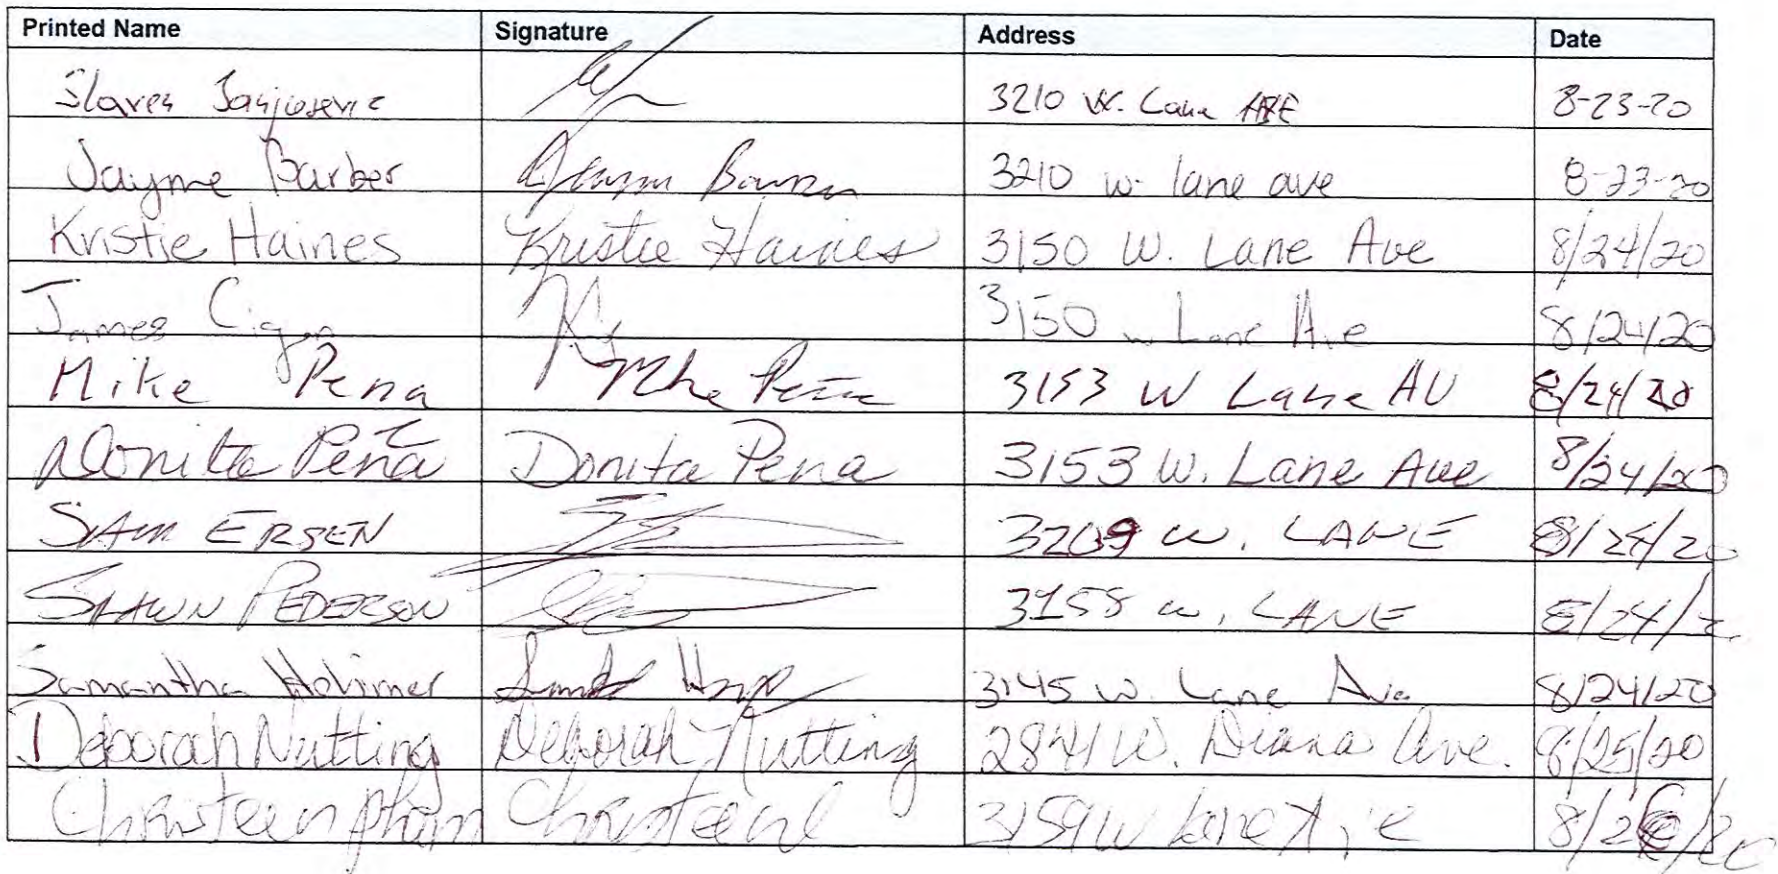 Printed Name Signature Address Date
3210 W. Lane AVE 8-23-20
Jayme Barber 3210 w. lane ave 8-23-20
Kristie Haines Kristie Haines 3150 W. Lane Ave 8/24/20
James 3150 w Lane Ave 8/24/20
Mike Pena Mike Pena 3153 W Lane AV 8/24/20
Donita Peña Donita Pena 3153 W. Lane Ave 8/24/20
SAM ERSEN 3209 W. LANE 8/24/20
SHAWN PEDERSON W. LANE
Samantha 3145 w. Lane Ave 8/24/20
Deborah Nutting Deborah Nutting 2841 W. Diana Ave. 8/25/20
Christeen Pham 3159 W Lane Ave